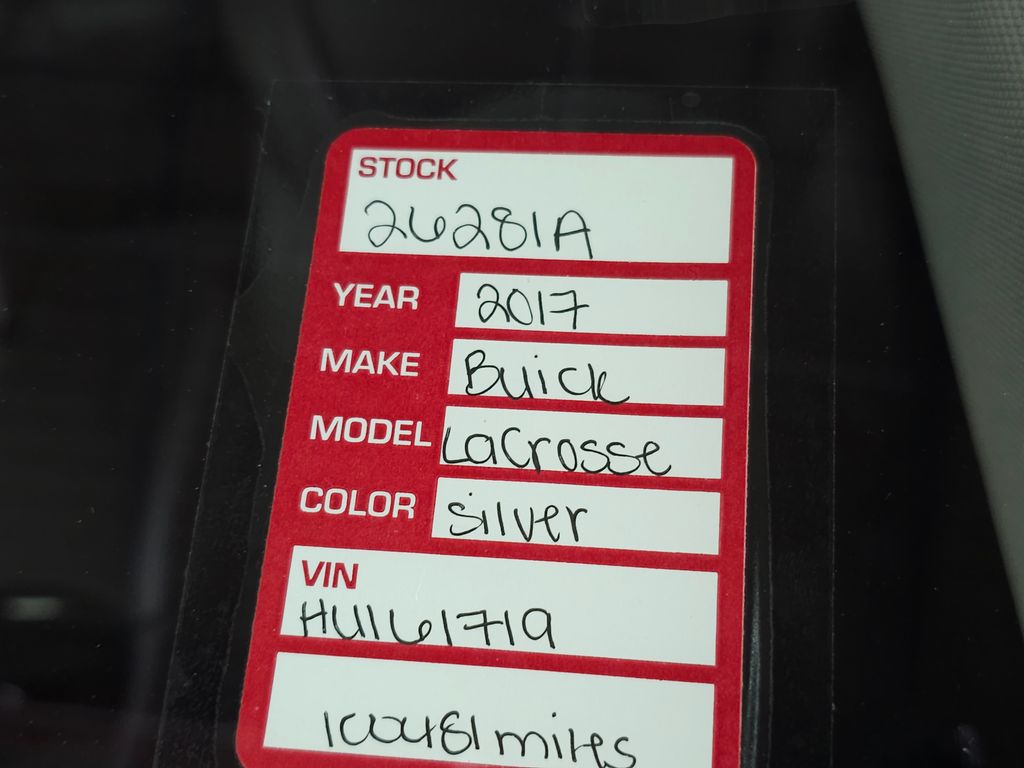 STOCK
26281A
YEAR 2017
MAKE Buick
MODEL LaCrosse
COLOR Silver
VIN
HU161719
100481 miles